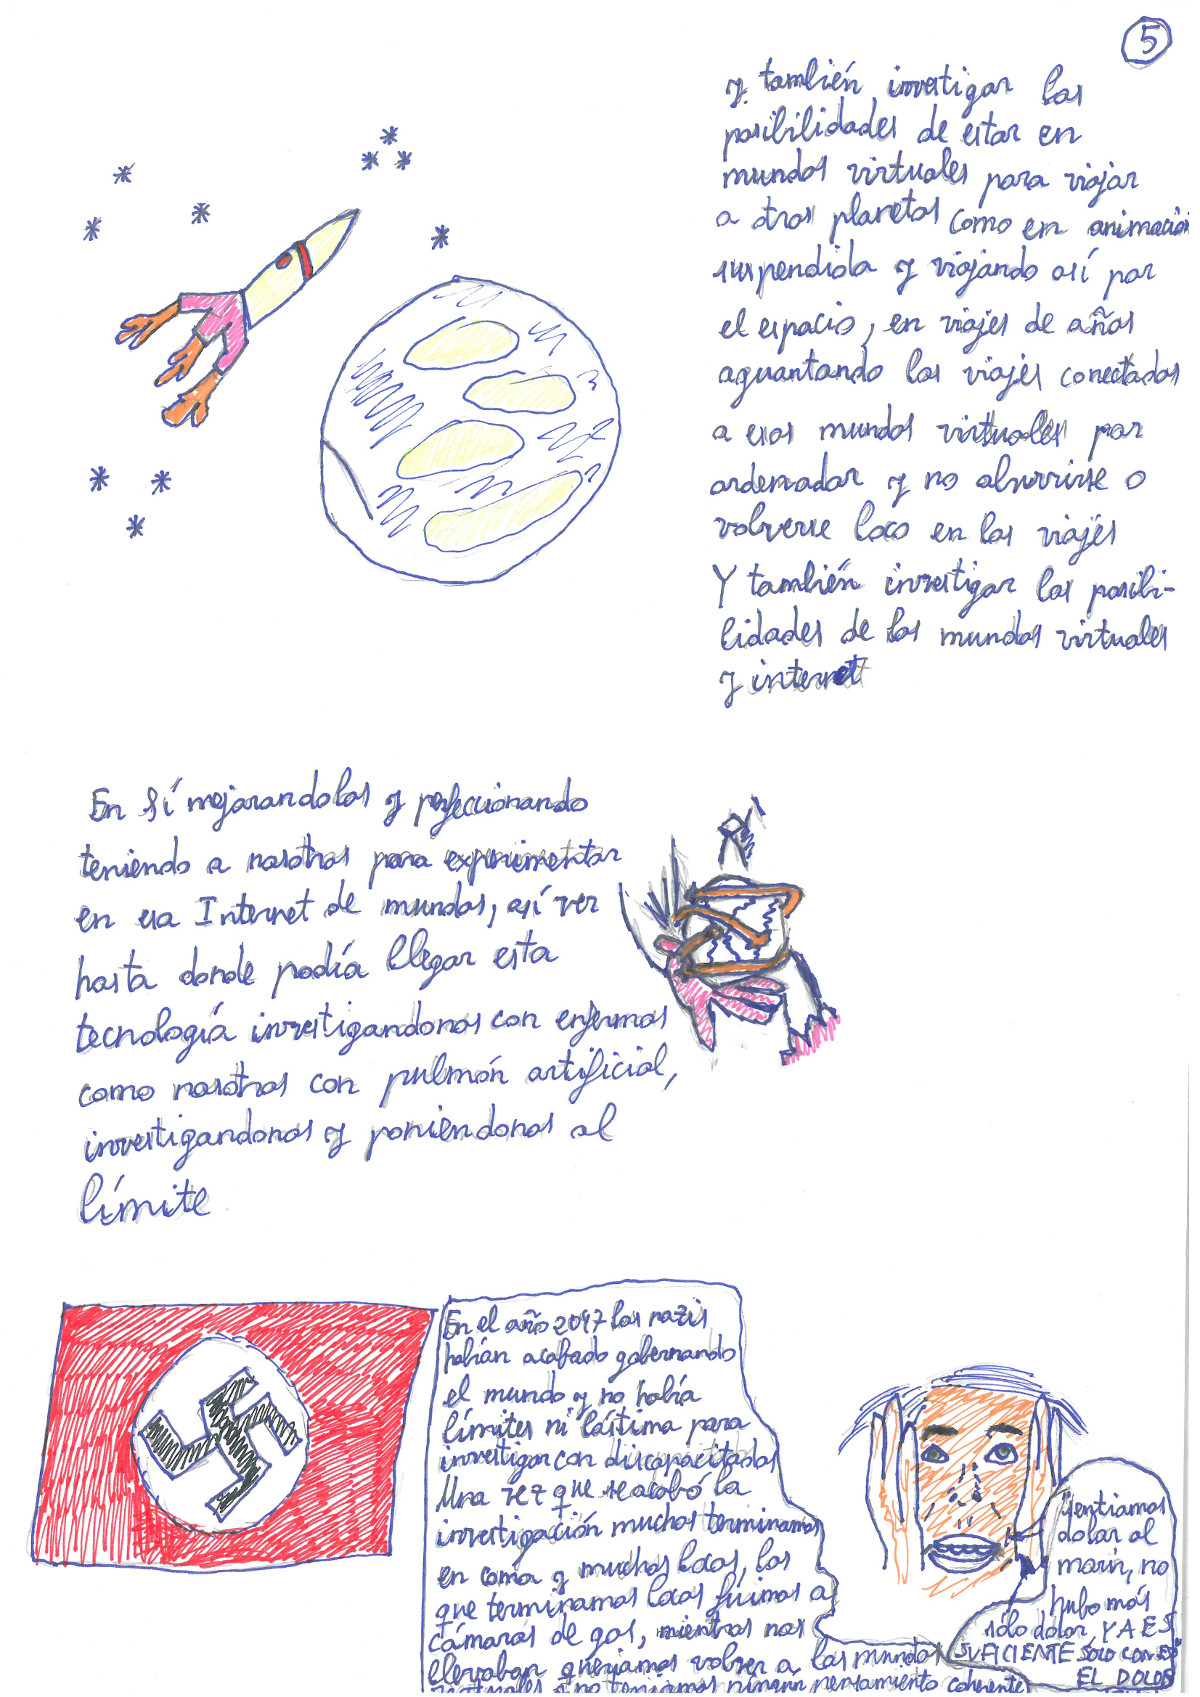 5
y también investigar las
posibilidades de estar en
mundos virtuales para viajar
a otros planetas como en animación
suspendida y viajando así por
el espacio, en viajes de años
aguantando los viajes conectados
a esos mundos virtuales por
ordenador y no aburrirse o
volverse loco en los viajes
Y también investigar las posibi-
lidades de los mundos virtuales
y internet
En sí mejorandolas y perfeccionando
teniendo a nosotros para experimentar
en esa Internet de mundos, así ver
hasta donde podía llegar esta
tecnología investigandonos con enfermos
como nosotros con pulmón artificial,
investigandonos y poniendonos al
límite
En el año 2047 los nazis
habían acabado gobernando
el mundo y no había
límites ni lástima para
investigar con discapacitados
Una vez que se acabó la
investigación muchos terminamos
en coma y muchos locos, los
que terminamos locos fuimos a
cámaras de gas, mientras nos
llevaban queriamos volver a los mundos
virtuales y no teníamos ningun pensamiento coherente
sentiamos
dolor al
morir, no
hubo más
sólo dolor, Y A ES
SUFICIENTE SOLO CON ES
EL DOLOR